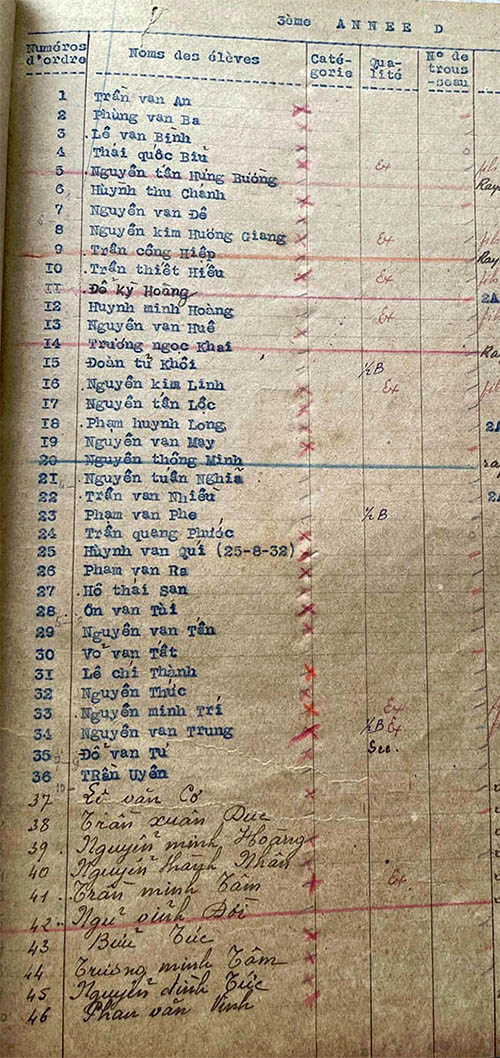 3ème ANNEE D
Numéros d'ordre Noms des élèves Caté-gorie Qua-lité N° de trous-seau
1 Trần van An
2 Phùng van Ba
3 Lê van Bình
4 Thái quốc Bìu
5 Nguyễn tấn Hưng Bường Ex
6 Hùynh thu Chánh
7 Nguyễn van Đề
8 Nguyễn kim Hương Giang Ex
9 Trần công Hiệp
10 Trần thiết Hiếu Ex
11 Đỗ kỳ Hoàng 2A
12 Huynh minh Hoàng Ex
13 Nguyễn van Huê
14 Trương ngọc Khai
15 Đoàn tử Khôi ½B
16 Nguyễn kim Linh Ex
17 Nguyễn tấn Lộc
18 Phạm huynh Long 2A
19 Nguyễn van May
20 Nguyễn thông Minh
21 Nguyễn tuấn Nghĩa
22 Trần van Nhiều
23 Phạm van Phe ½B
24 Trần quang Phước
25 Hùynh van Quí (25-8-32)
26 Phạm van Ra
27 Hồ thái San
28 Ôn van Tài
29 Nguyễn van Tấn
30 Võ van Tất
31 Lê chí Thành
32 Nguyễn Thức
33 Nguyễn minh Trí Ex
34 Nguyễn van Trung ½B Ex
35 Đỗ van Tư
36 TRần Uyển
37 Lê văn Cơ
38 Trần xuân Đức
39 Nguyễn minh Hoàng
40 Nguyễn thành Nhân
41 Trần minh Tâm Ex
42 Ngũ vinh Đời
43 Bửu Túc
44 Trương minh Tâm
45 Nguyễn đình Túc
46 Phan văn Vinh